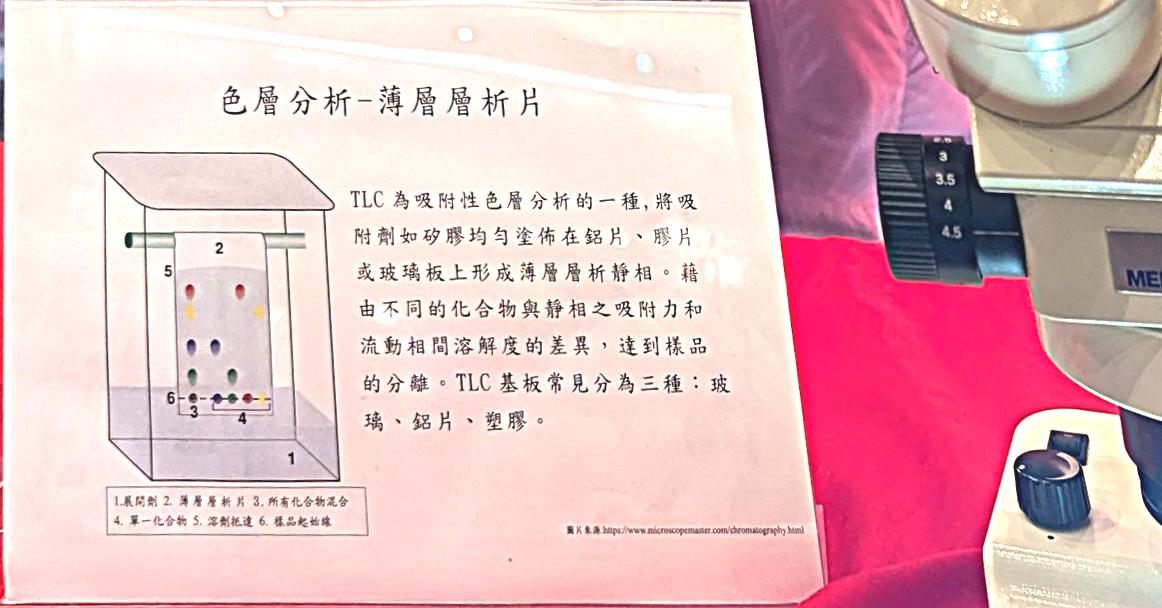 色層分析-薄層層析片
TLC 為吸附性色層分析的一種,將吸
附劑如矽膠均勻塗佈在鋁片、膠片
或玻璃板上形成薄層層析靜相。藉
由不同的化合物與靜相之吸附力和
流動相間溶解度的差異，達到樣品
的分離。TLC 基板常見分為三種：玻
璃、鋁片、塑膠。
2
5
6
3
4
1
1.展開劑 2. 薄層層析片 3. 所有化合物混合
4. 單一化合物 5. 溶劑抵達 6. 樣品起始線
圖片來源:https://www.microscopemaster.com/chromatography.html
3
3.5
4
4.5